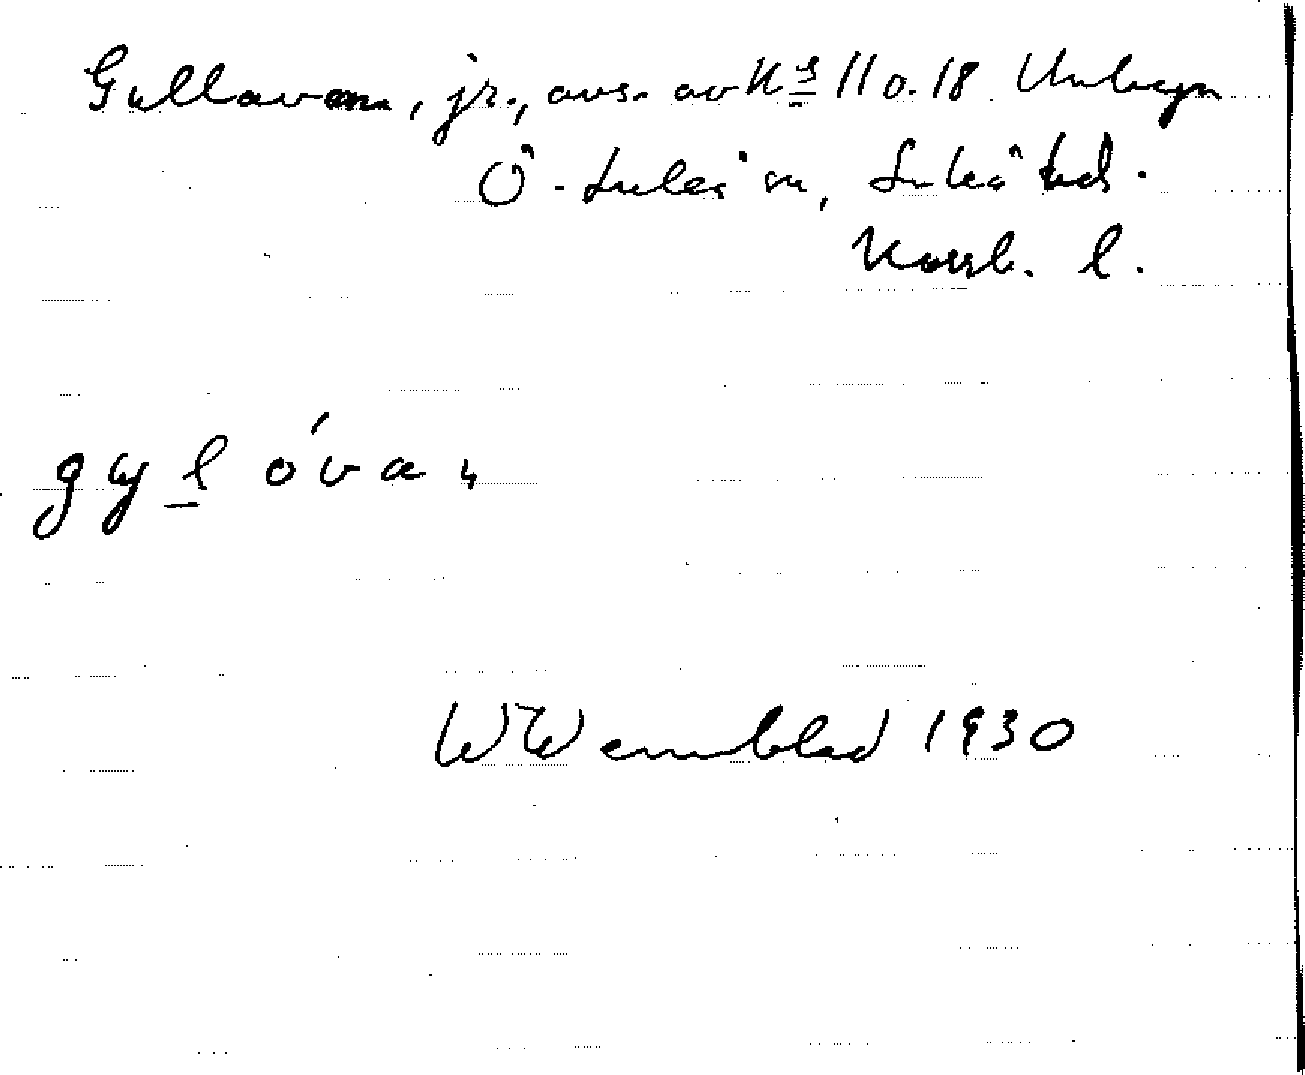 Gullavan, jr., avs. av Kª 11 o. 18 Unbyn
Ö-Luleå sn, Luleå tkd.
Norrb. l.
W Wennblad 1930